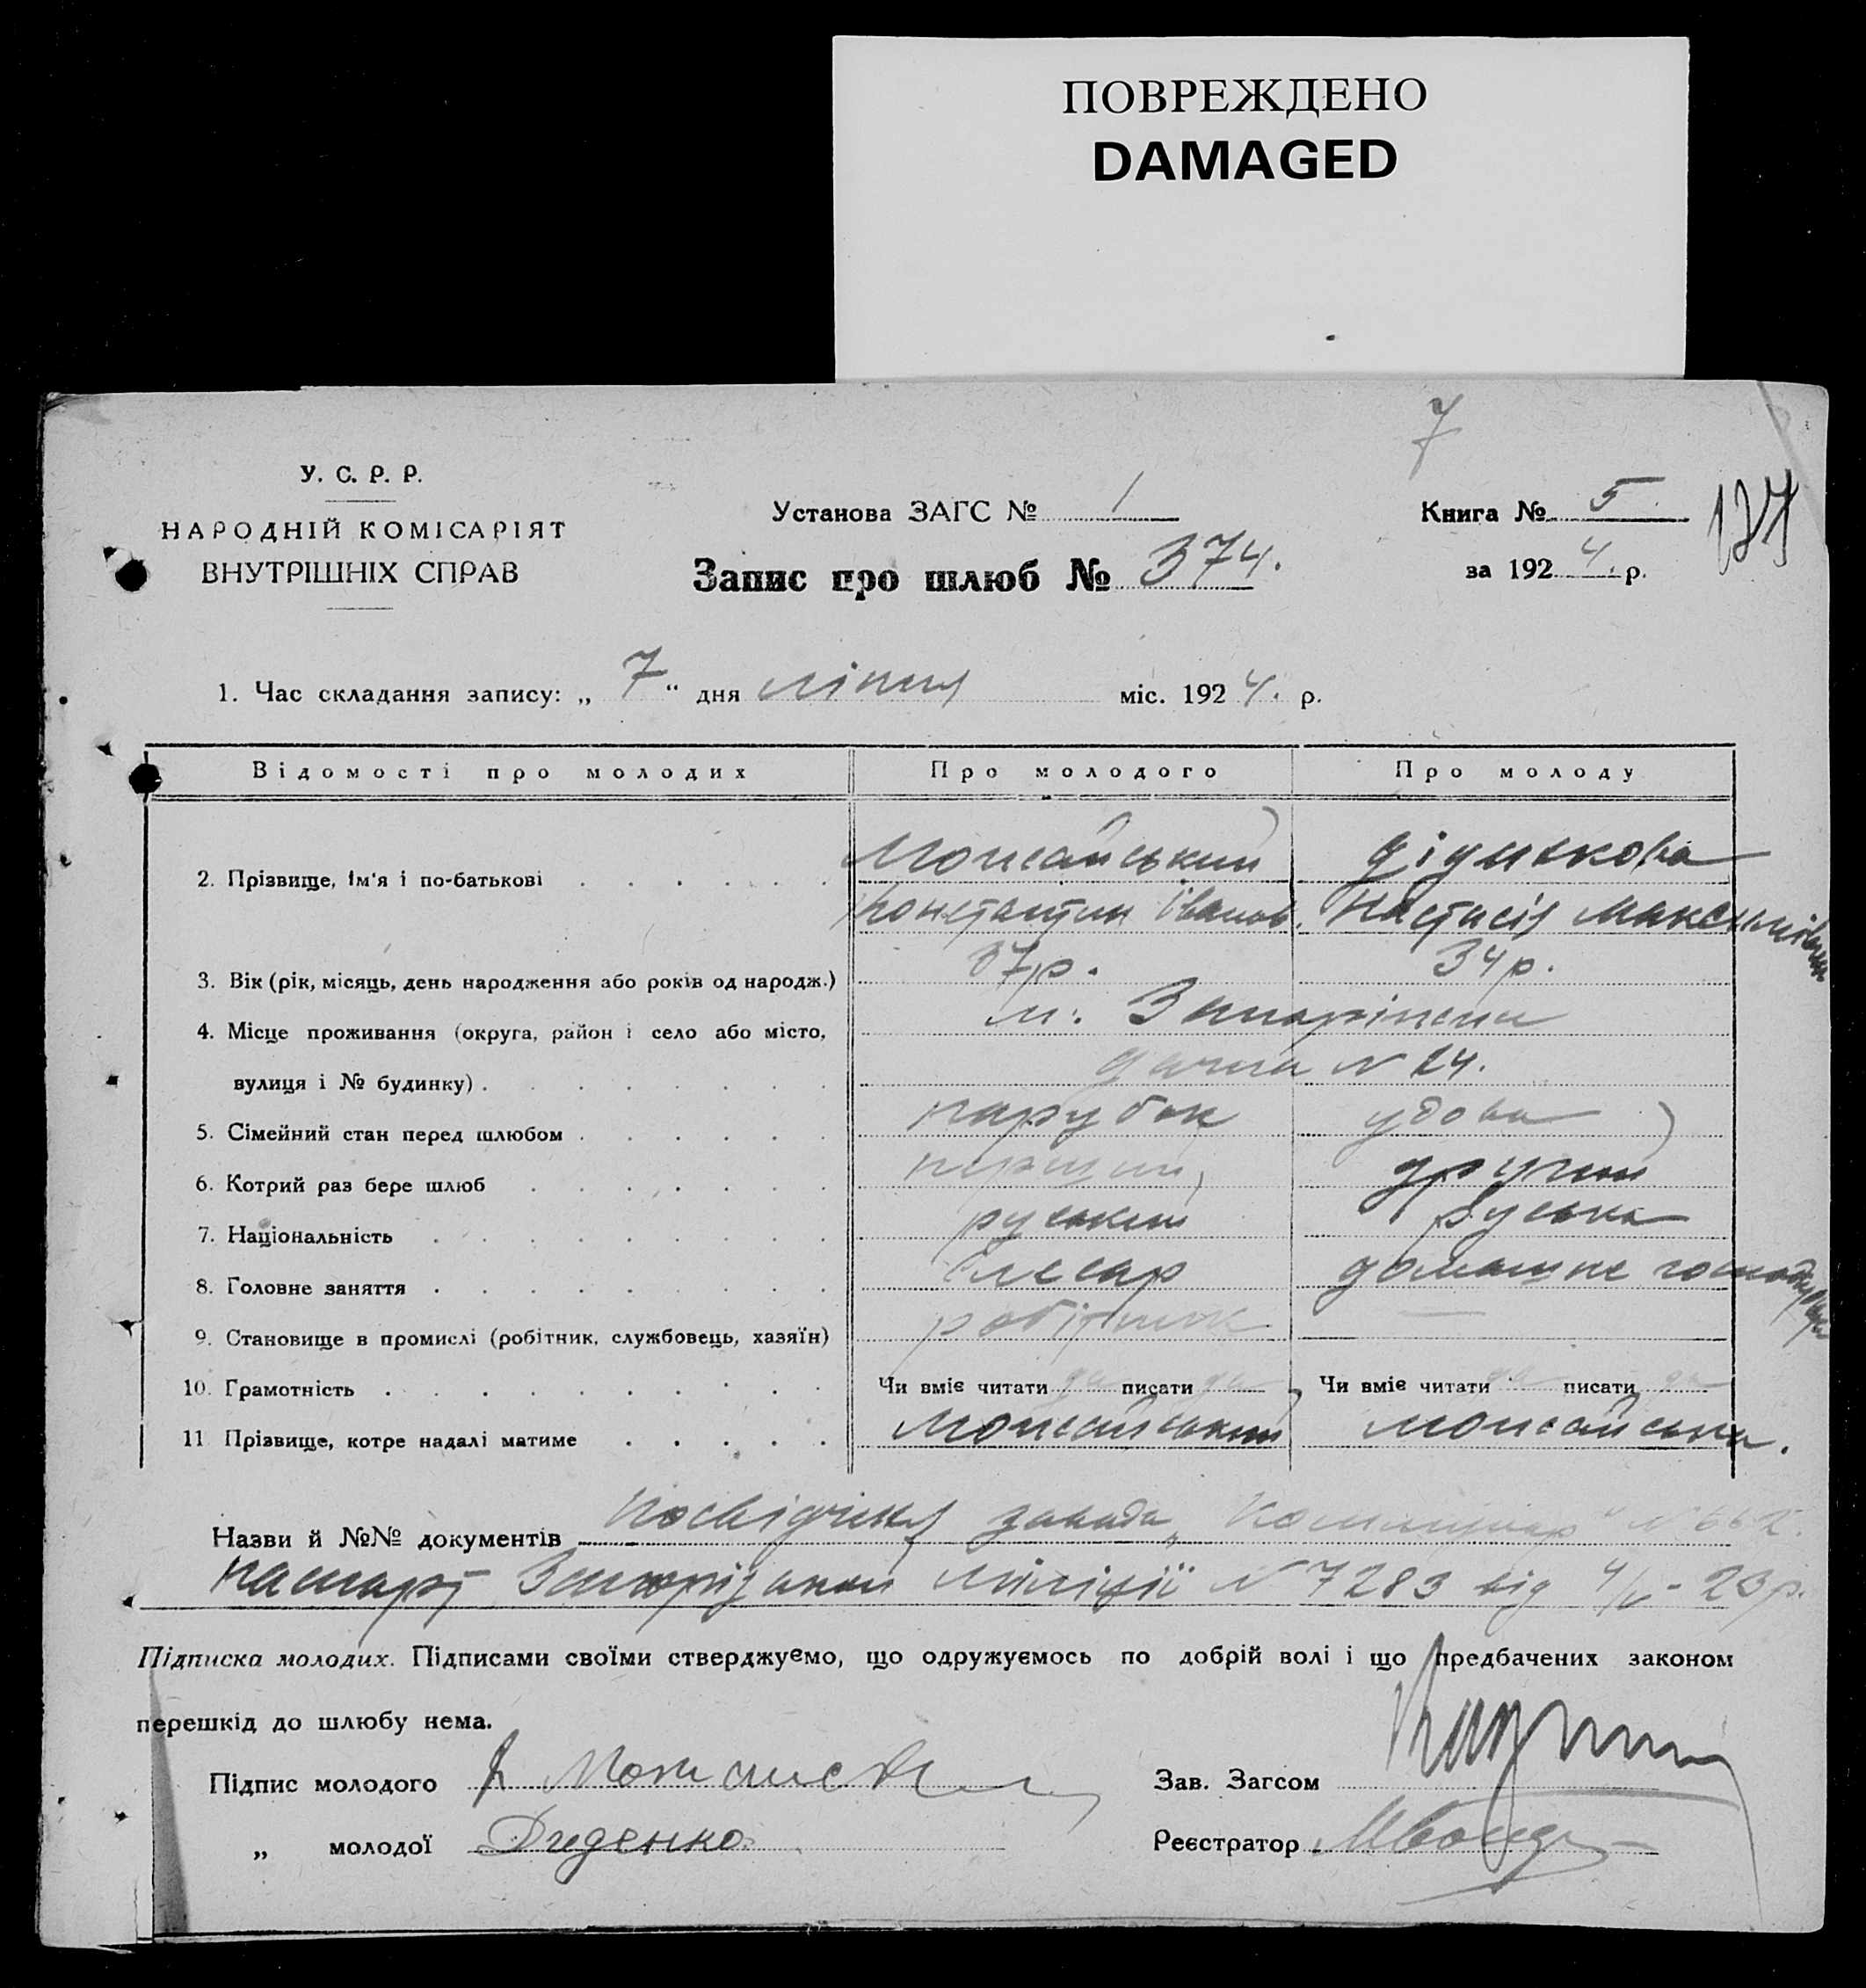 ПОВРЕЖДЕНО
DAMAGED
7
У. С. Р. Р.
НАРОДНІЙ КОМІСАРІЯТ
ВНУТРІШНІХ СПРАВ
Установа ЗАГС № 1
Запис про шлюб № 374.
Книга № 5
за 1924. р.
1. Час складання запису: „ 7 “ дня ліпня міс. 1924. р.
Відомості про молодих Про молодого Про молоду
2. Прізвище, ім'я і по-батькові Можайський
Константин Іванов. Настасія Максимівна
3. Вік (рік, місяць, день народження або років од народж.) 37 р. 34 р.
4. Місце проживання (округа, район і село або місто, м. Запоріжжя
вулиця і № будинку) N 24.
5. Сімейний стан перед шлюбом парубок удова
6. Котрий раз бере шлюб перший другий
7. Національність руський руська
8. Головне заняття слесар домашне
9. Становище в промислі (робітник, службовець, хазяїн) робітник —
10. Грамотність Чи вміє читати да писати да Чи вміє читати да писати да
11 Прізвище, котре надалі матиме Можайський Можайська.
Назви й №№ документів завода „Комунар“ N 662.
пашпорт міліції N 7283 від 23 р.
Підписка молодих. Підписами своїми стверджуємо, що одружуємось по добрій волі і що предбачених законом
перешкід до шлюбу нема.
Підпис молодого Зав. Загсом
„ молодої Диденко Реєстратор